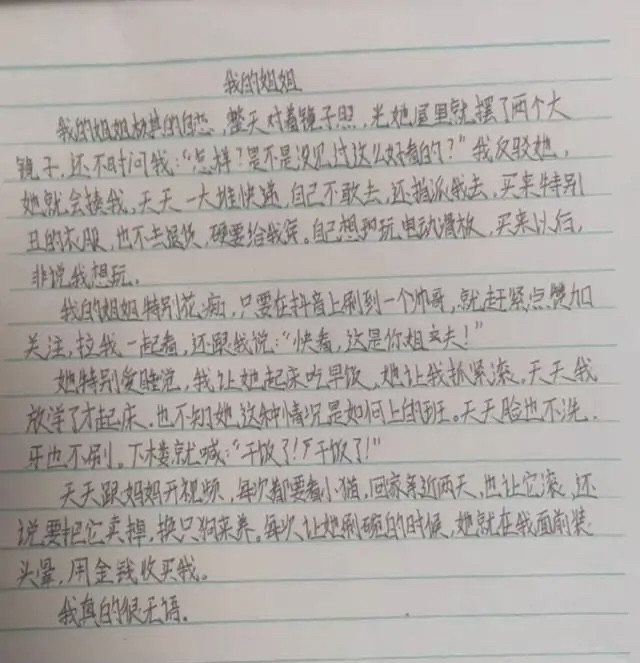 我的姐姐
我的姐姐极其的自恋，整天对着镜子照，光她屋里就摆了两个大
镜子，还不时问我：“怎样？是不是没见过这么好看的？”我反驳她，
她就会揍我，天天一大堆快递，自己不敢去，还指派我去，买来特别
丑的衣服，也不去退货，硬要给我穿。自己想玩电动滑板，买来以后，
非说我想玩。
我的姐姐特别花痴，只要在抖音上刷到一个帅哥，就赶紧点赞加
关注，拉我一起看，还跟我说：“快看，这是你姐丈夫！”
她特别爱睡觉，我让她起床吃早饭，她让我抓紧滚，天天我
放学了才起床，也不知她这种情况是如何上的班。天天脸也不洗，
牙也不刷。下楼就喊：“干饭了！干饭了！”
天天跟妈妈开视频，每次都要看小猫，回家亲近两天，也让它滚，还
说要把它卖掉，换只狗来养。每次让她刷碗的时候，她就在我面前装
头晕，用金钱收买我。
我真的很无语。